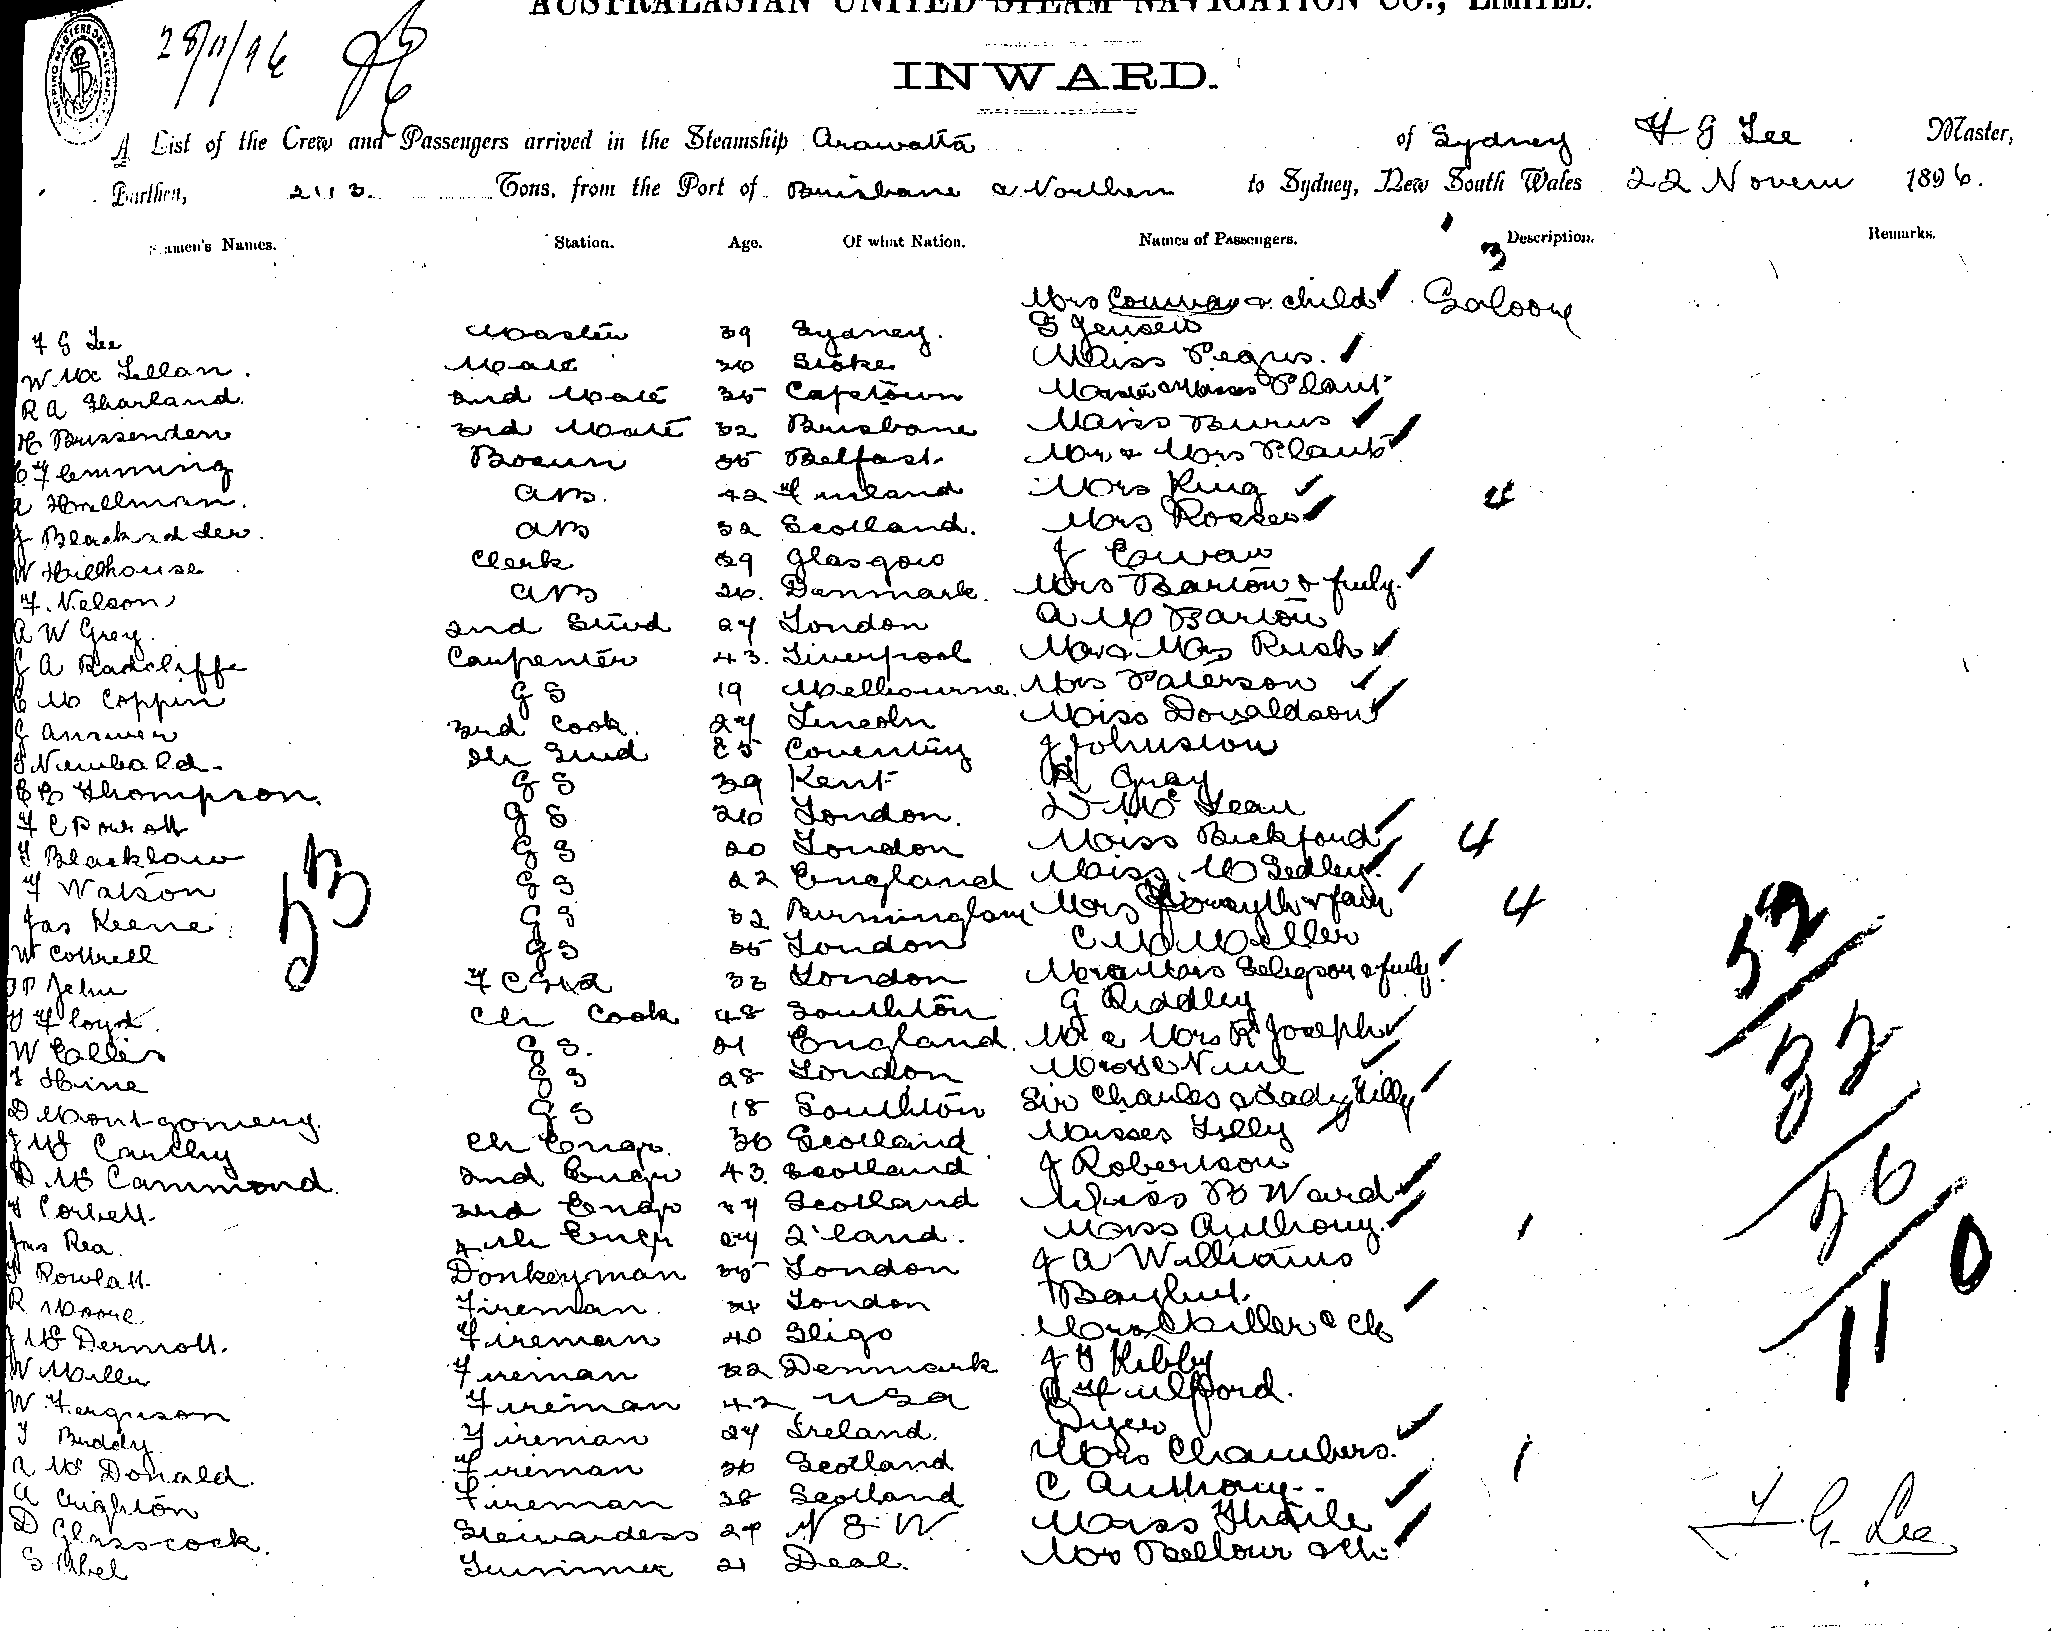 AUSTRALASIAN UNITED STEAM NAVIGATION CO., LIMITED.
28/11/96
INWARD.
A List of the Crew and Passengers arrived in the Steamship Arawatta of Sydney F G Lee Master,
Burthen, 2113 Tons, from the Port of Brisbane & Northern to Sydney, New South Wales 22 Novem 1896.
Seamen's Names. Station. Age. Of what Nation. Names of Passengers. Description. Remarks.
3
Mrs Conway & child Saloon
F G Lee Master 39 Sydney. G Jensen
W McLellan. Mate 36 Stoke Miss Pegus.
R A Sharland. 2nd Mate 35 Capetown Master & Misses Plant
H Bussenden 3rd Mate 32 Brisbane Miss Burns
C Flemming Bosun 35 Belfast Mr & Mrs Plant
A Hallman. AB. 42 Finland Mrs King 4
J Blackadder. AB 32 Scotland. Mrs Rosses
W Hillhouse Clerk 39 Glasgow J Cowan
F. Nelson AB 26. Denmark. Mrs Barton & fmly.
A W Grey. 2nd Stwd 27 London A M Barton
J A Radcliffe Carpenter 43. Liverpool Mr & Mrs Rush
C M Coppin G S 19 Melbourne. Mrs Paterson
G Answer 3rd Cook. 27 Lincoln Miss Donaldson
T Newbold Ch Stwd 25 Coventry J Johnston
C E Thompson. G S 39 Kent R Gray
F C Powell G S 26 London. D McLean
T Blacklaw G S 20 London Miss Bickford 4
F Watson G S 22 England Miss M Sedley.
Jas Keene. G S 32 Birmingham Mrs Forsyth & fam 4
W Cottrell G S 35 London C M Miller
53
Jehu F C Stwd 33 London Mr & Mrs Seligson & fmly.
T Floyd. Ch Cook 48 Southton G Riddley
W Collis G S. 21 England. Mr & Mrs R Joseph
T Hine G S 28 London
D Montgomery. G S 18 Southton Sir Charles & Lady Lilly
J McCarthy Ch Engr. 36 Scotland Misses Lilly
D McCammond. 2nd Engr 43. Scotland J Robertson
T Corbett. 3rd Engr 37 Scotland Miss B Ward
Jas Rea. 4th Engr 27 Q'land. Miss Anthony. 1
Rowlatt. Donkeyman 35 London J A Williams
R Moore Fireman. 34 London Bayhut.
J McDermott. Fireman 40 Sligo Mrs Skiller & Ch
W Miller Fireman 32 Denmark J T Kibby
W Ferguson Fireman 42 USA A Fullford.
T Buddy. Fireman 27 Ireland. Dyer
McDonald. Fireman 36 Scotland Mrs Chambers. 1
A Crighton Fireman 38 Scotland C Anthony.
D Glasscock. Stewardess 27 N S W. Miss Thaile
S Abel Trimmer 21 Deal. Mrs Bellour & Ch.
52
32
26
110
F. G. Lee